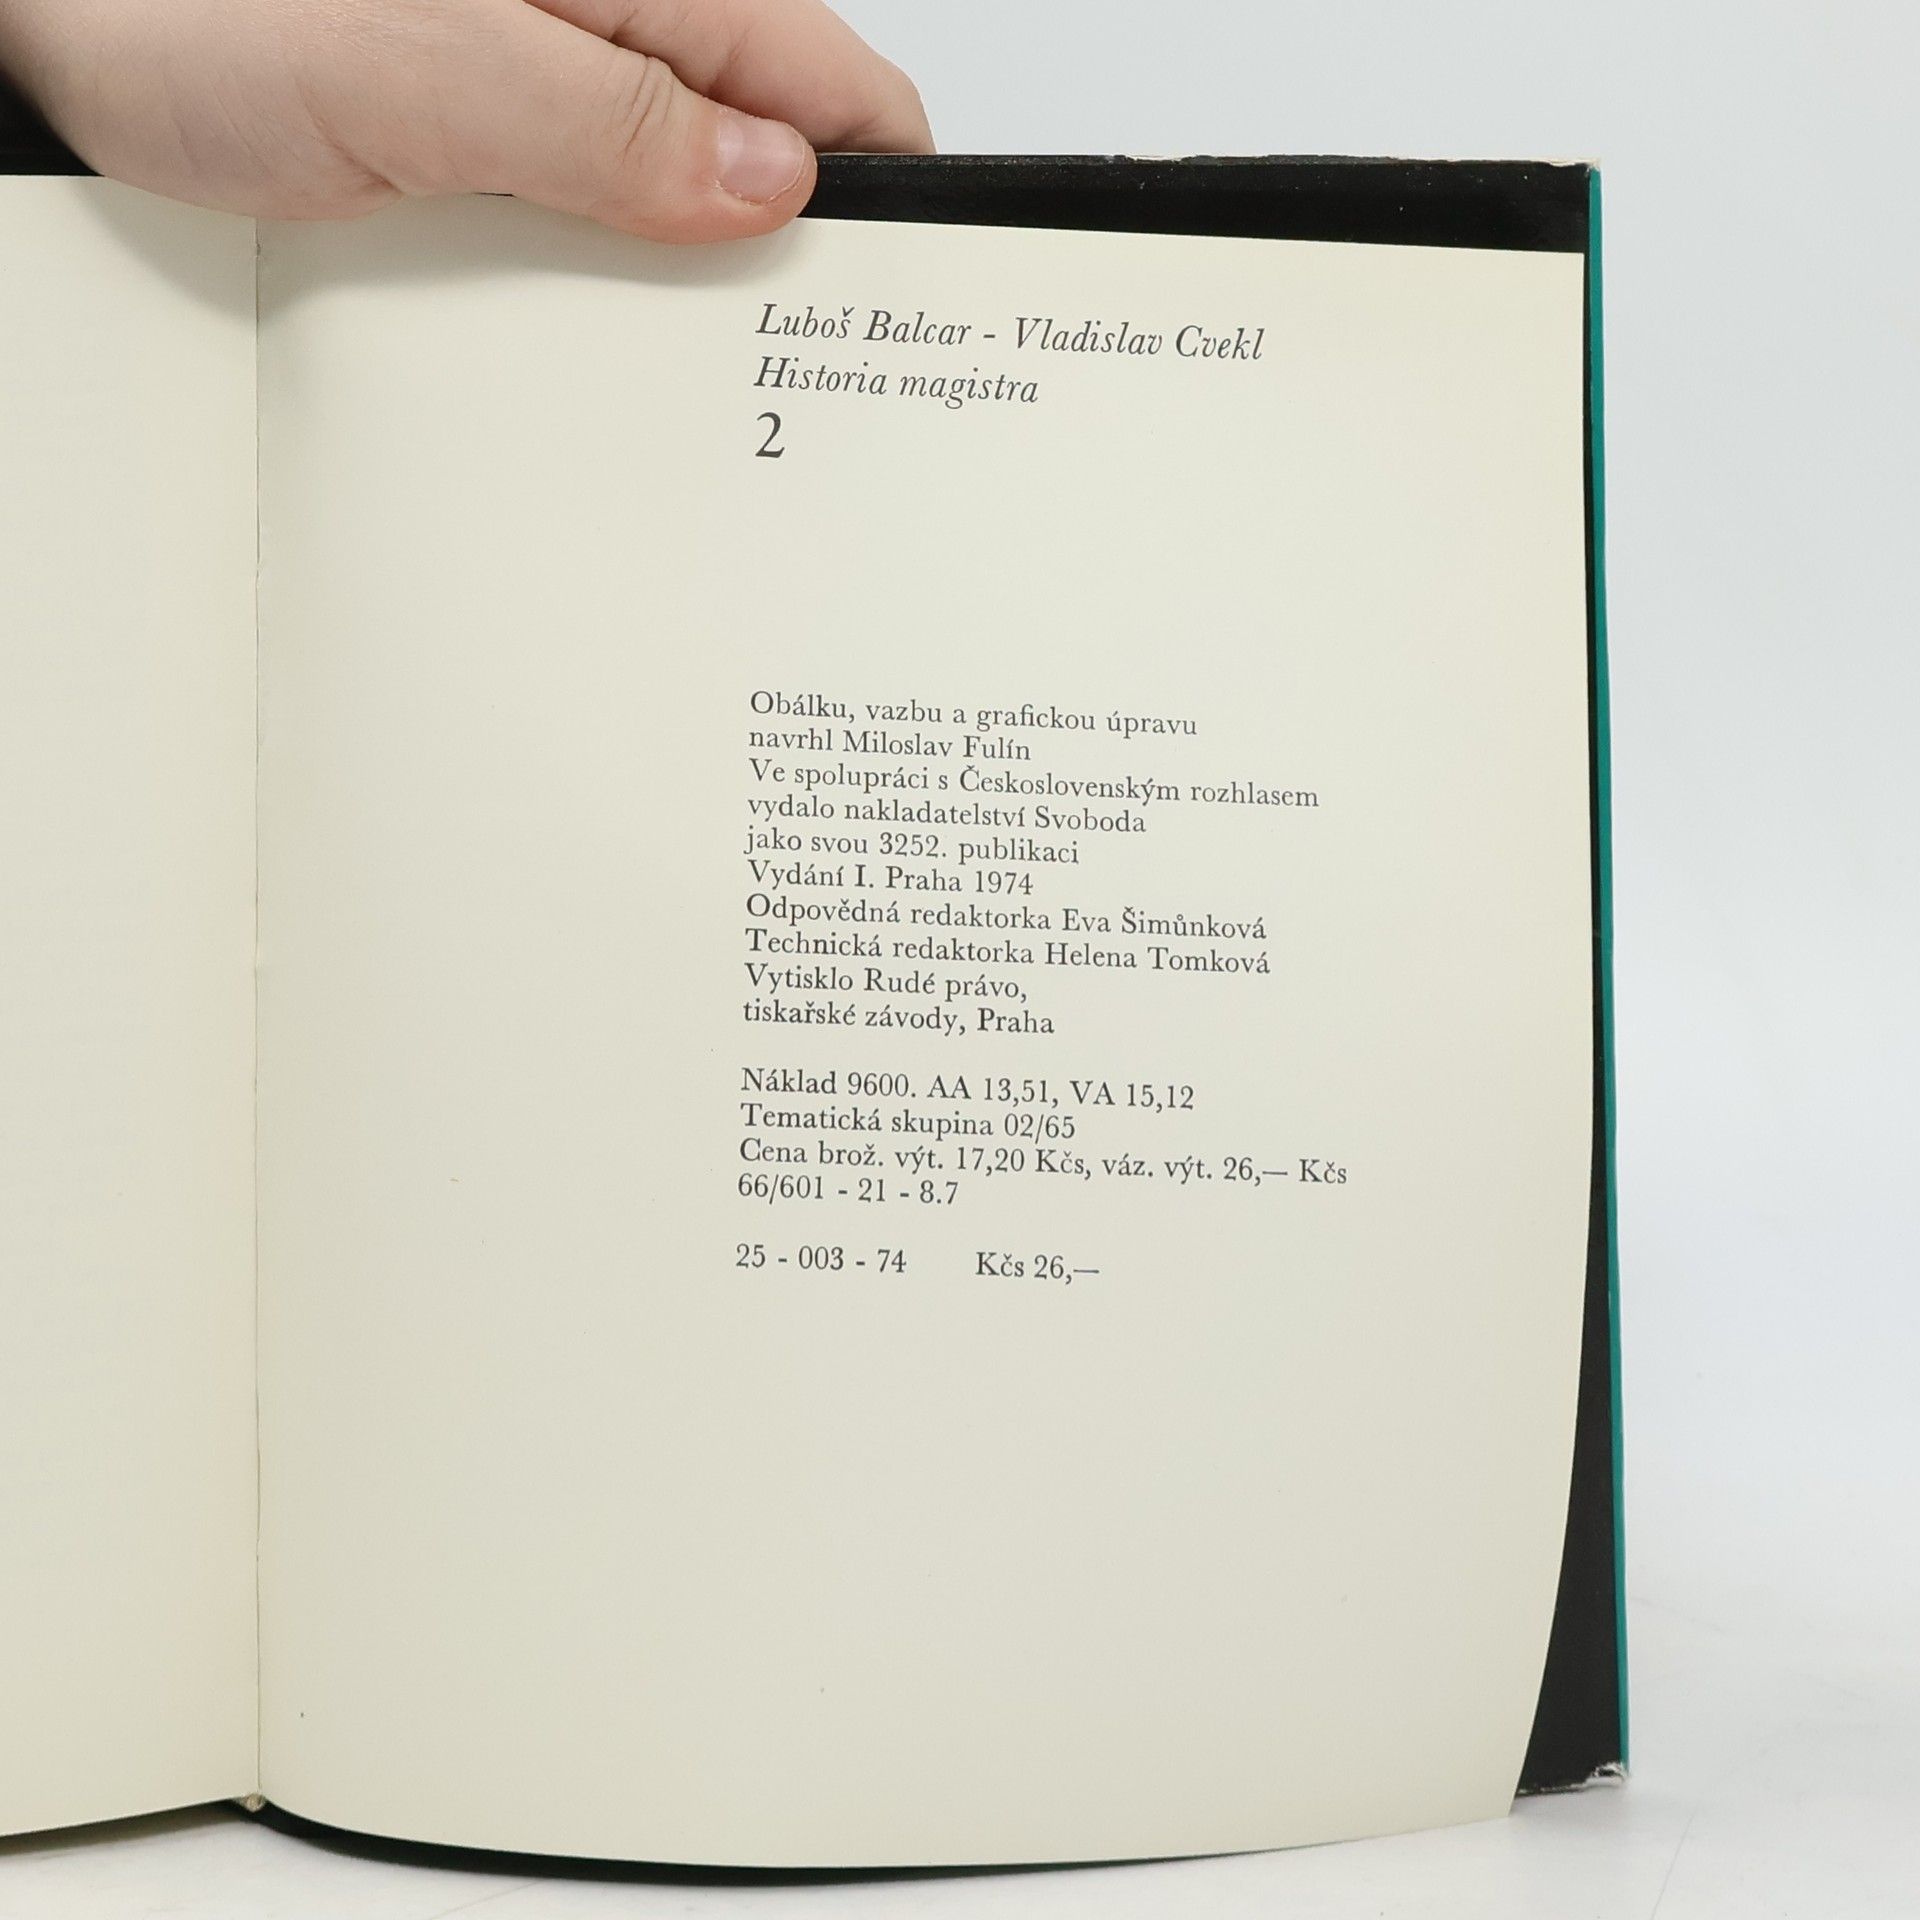 Luboš Balcar - Vladislav Cvekl
Historia magistra
2
Obálku, vazbu a grafickou úpravu
navrhl Miloslav Fulín
Ve spolupráci s Československým rozhlasem
vydalo nakladatelství Svoboda
jako svou 3252. publikaci
Vydání I. Praha 1974
Odpovědná redaktorka Eva Šimůnková
Technická redaktorka Helena Tomková
Vytisklo Rudé právo,
tiskařské závody, Praha
Náklad 9600. AA 13,51, VA 15,12
Tematická skupina 02/65
Cena brož. výt. 17,20 Kčs, váz. výt. 26,— Kčs
66/601 - 21 - 8.7
25 - 003 - 74 Kčs 26,—